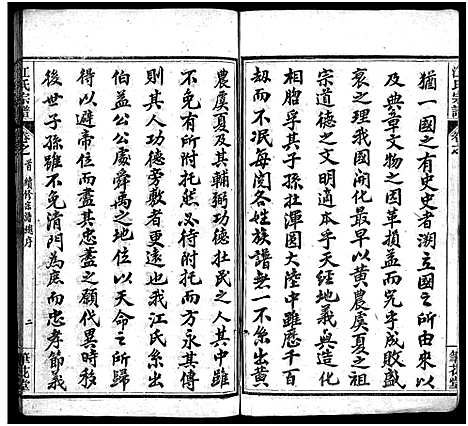 江氏宗譜
卷之
猶一國之有史史者溯立國之所由來以
及典章文物之因革損益而究乎成敗盛
衰之理我國開化最早以黃農虞夏之祖
宗道德之文章本乎天經地義與造化
相胞孚其子孫壯渾圓大陸中雖應千百
劫而不泯毎閱各姓族譜無一不系出黃
農虞夏及其輔弼功德壯民之人其中雖
不免有所附托然必有待附托者方永其傳
則其人功德旁敷者更遠也我江氏系出
伯益公公處舜禹之地位以天命之所歸
得以避帝位而其忠藎之願代異時移
後世子孫雖不免清門為庶而忠孝節義
江氏宗譜
卷之首
續修宗譜總序
二
筆花堂